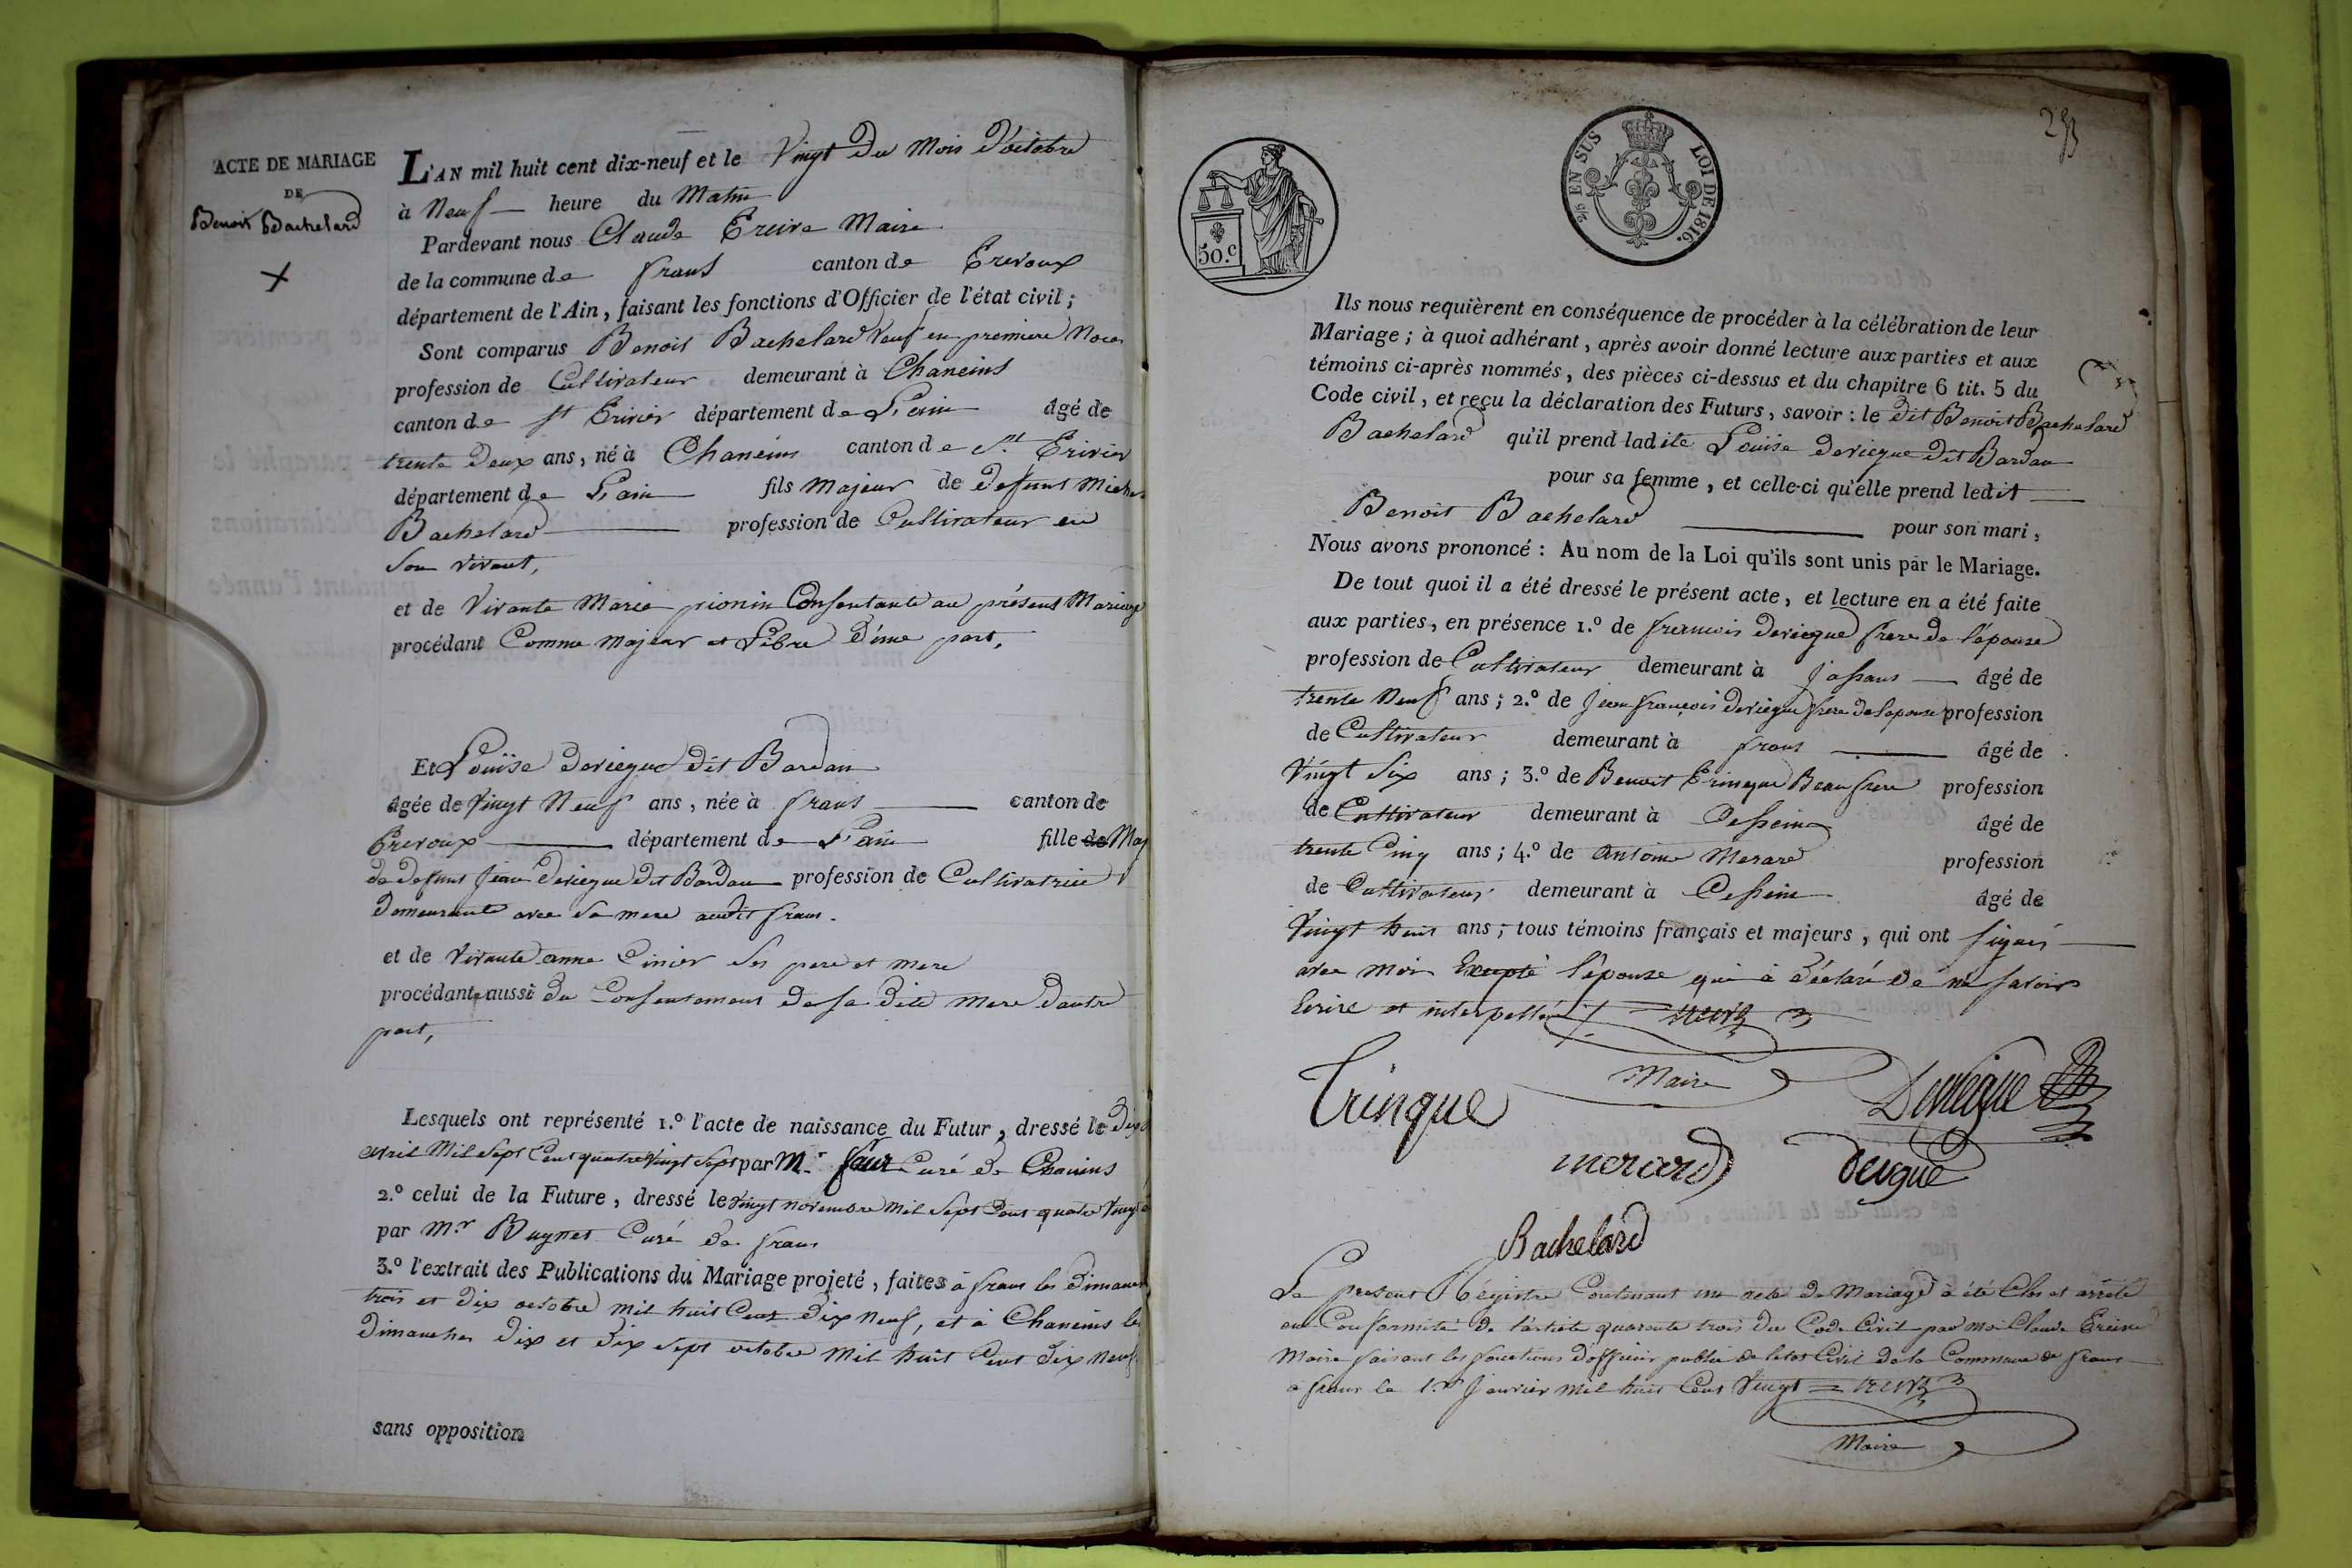 ACTE DE MARIAGE
DE
Benoit Bachelard
L'AN mil huit cent dix-neuf et le Vingt du mois d'octobre
à Neuf heure du Matin
Pardevant nous Claude Maire
de la commune de frans canton de Trevoux
département de l'Ain, faisant les fonctions d'Officier de l'état civil ;
Sont comparus Benoit Bachelard Veuf en premiere Noces
profession de Cultivateur demeurant à Chaneins
canton de St Trivier département de L'ain âgé de
trente deux ans, né à Chaneins canton de St. Trivier
département de L'ain fils majeur de defunt Michel
Bachelard profession de Cultivateur en
son vivant,
et de Vivante Marie pionin Consentante au présent Mariage
procédant Comme majeur et Libre d'une part,
Et Louise deviegue dit Bardan
âgée de Vingt Neuf ans, née à frans canton de
Trevoux département de L'ain fille de Maj
de defunt Jean deviegue dit Bardan profession de Cultivatrice
demeurante avec sa mere audit frans.
et de Vivante anne Cinier ses pere et mere
procédant aussi du Consentement de sa dite mere dautre
part,
Lesquels ont représenté 1.º l'acte de naissance du Futur, dressé le Dix
avril Mil sept Cent quatre Vingt sept par Mr. Curé de Chaneins
2.º celui de la Future, dressé le Vingt novembre mil sept Cent quatre Vingt
par Mr Buynet Curé de frans
3.º l'extrait des Publications du Mariage projeté, faites à frans les dimanches
trois et dix octobre mil huit Cent dix neuf, et à Chaneins les
dimanches dix et dix sept octobre mil huit Cent dix neuf
sans opposition
50.c
2/5 EN SUS
LOI DE 1816.
Ils nous requièrent en conséquence de procéder à la célébration de leur
Mariage ; à quoi adhérant, après avoir donné lecture aux parties et aux
témoins ci-après nommés, des pièces ci-dessus et du chapitre 6 tit. 5 du
Code civil, et reçu la déclaration des Futurs, savoir : le dit Benoit Bachelard
Bachelard qu'il prend ladite Louise deviegue dit Bardan
pour sa femme, et celle-ci qu'elle prend ledit
Benoit Bachelard pour son mari,
Nous avons prononcé : Au nom de la Loi qu'ils sont unis par le Mariage.
De tout quoi il a été dressé le présent acte, et lecture en a été faite
aux parties, en présence 1.º de francois deviegue frere de l'épouse
profession de Cultivateur demeurant à Jassans âgé de
trente Neuf ans ; 2.º de Jean françois deviegue frere de lepouse profession
de Cultivateur demeurant à frans âgé de
Vingt Six ans ; 3.º de Benoit Trinque Beau frere profession
de Cultivateur demeurant à Cesseins âgé de
trente Cinq ans ; 4.º de Antoine Merard profession
de Cultivateur demeurant à Cesseins âgé de
Vingt huit ans ; tous témoins français et majeurs, qui ont signés
avec moi Excepté l'épouse qui à déclaré de ne savoir
Ecrire et interpellée
Maire
Trinque
Deviegue
merard
Bachelard
Le present Régistre Contenant un acte de Mariage à été Clos et arrêté
en Conformité de l'article quarante trois du Code Civil par moi Claude
Maire faisant les fonctions d'officier public de letat Civil de la Commune de frans
à frans le 1.er Janvier mil huit Cent Vingt
Maire